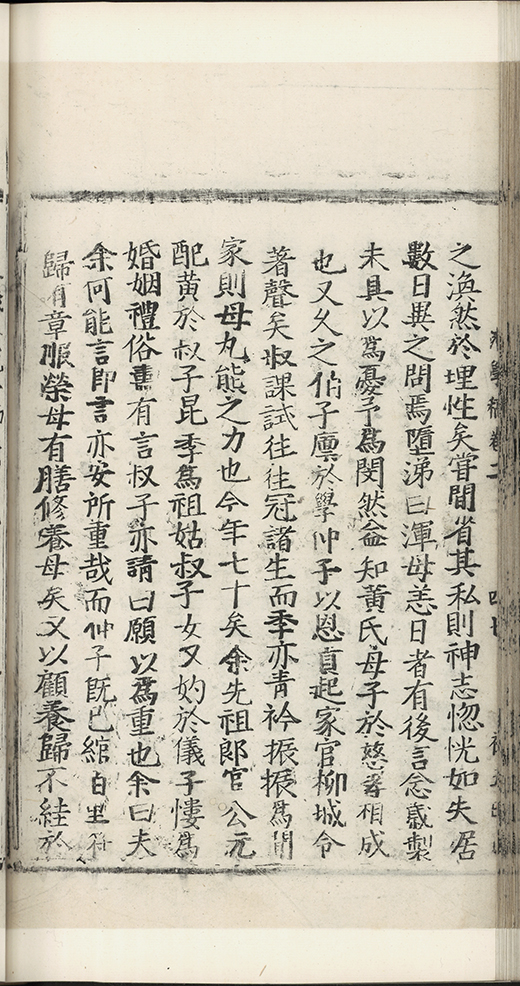 卷二
之渙然於理性矣嘗間省其私則神志惚恍如失居
數日異之問焉墮涕曰渾母恙日者有後言念歲製
未具以爲憂予爲閔然益知黃氏母子於慈孝相成
也又久之伯子廩於學仲子以恩貢起家官柳城令
著聲矣叔課試往往冠諸生而季亦青衿振振爲聞
家則母丸熊之力也今年七十矣余先祖郎官公元
配黃於叔子昆季爲祖姑叔子女又妁於儀子慺爲
婚姻禮俗壽有言叔子亦請曰願以爲重也余曰夫
余何能言即言亦安所重哉而仲子既已綰百里符
歸有章服榮母有膳修養母矣又以顧養歸不絓於